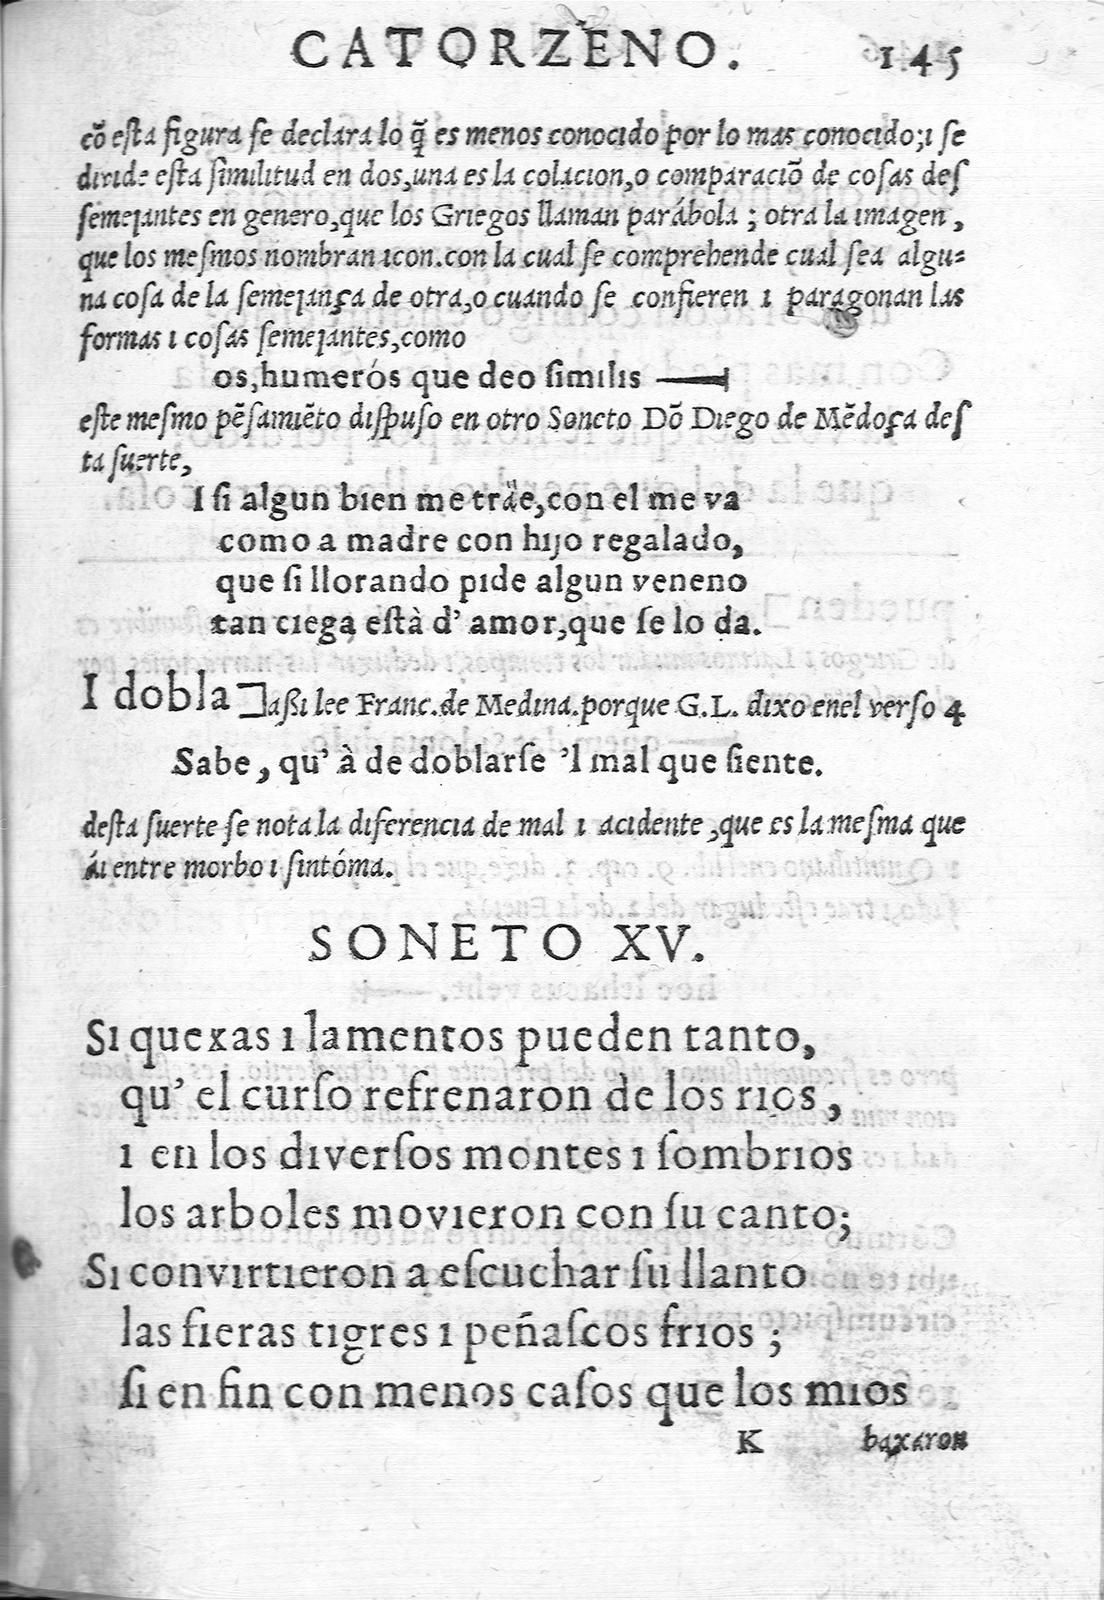 CATORZENO. 145
cō esta figura se declara lo q̄ es menos conocido por lo mas conocido; ı se
divide esta similitud en dos, una es la colacıon, o comparacıō de cosas des
semeȷantes en genero, que los Griegos llaman parábola ; otra la ımagen ,
que los mesmos nombran ıcon. con la cual se comprehende cual sea algu=
na cosa de la semeȷança de otra, o cuando se confieren ı paragonan las
formas ı cosas semeȷantes, como
os, humerós que deo sımılıs —
este mesmo pēsamıēto dıspuso en otro Soneto Dō Dıego de Mēdoça des
ta suerte,
I sı algun bıen me trae, con el me va
como a madre con hıȷo regalado,
que sı llorando pıde algun veneno
tan cıega està d' amor, que se lo da.
I dobla ⊐ aßı lee Franc. de Medına. porque G.L. dıxo enel verso 4
Sabe, qu' à de doblarse 'l mal que sıente.
desta suerte se nota la dıferencıa de mal ı acıdente , que es la mesma que
áı entre morbo ı sıntóma.
SONETO XV.
Sı quexas ı lamentos pueden tanto,
qu' el curso refrenaron de los rıos ,
ı en los dıversos montes ı sombrıos
los arboles movıeron con su canto;
Sı convırtıeron a escuchar su llanto
las fıeras tıgres ı peñascos frıos ;
sı en fın con menos casos que los mıos
K baxaron